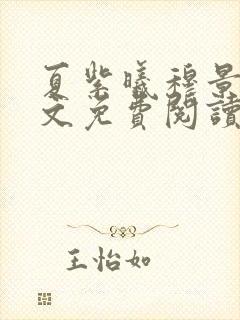 夏紫曦穆景
文免費閱讀
王怡如